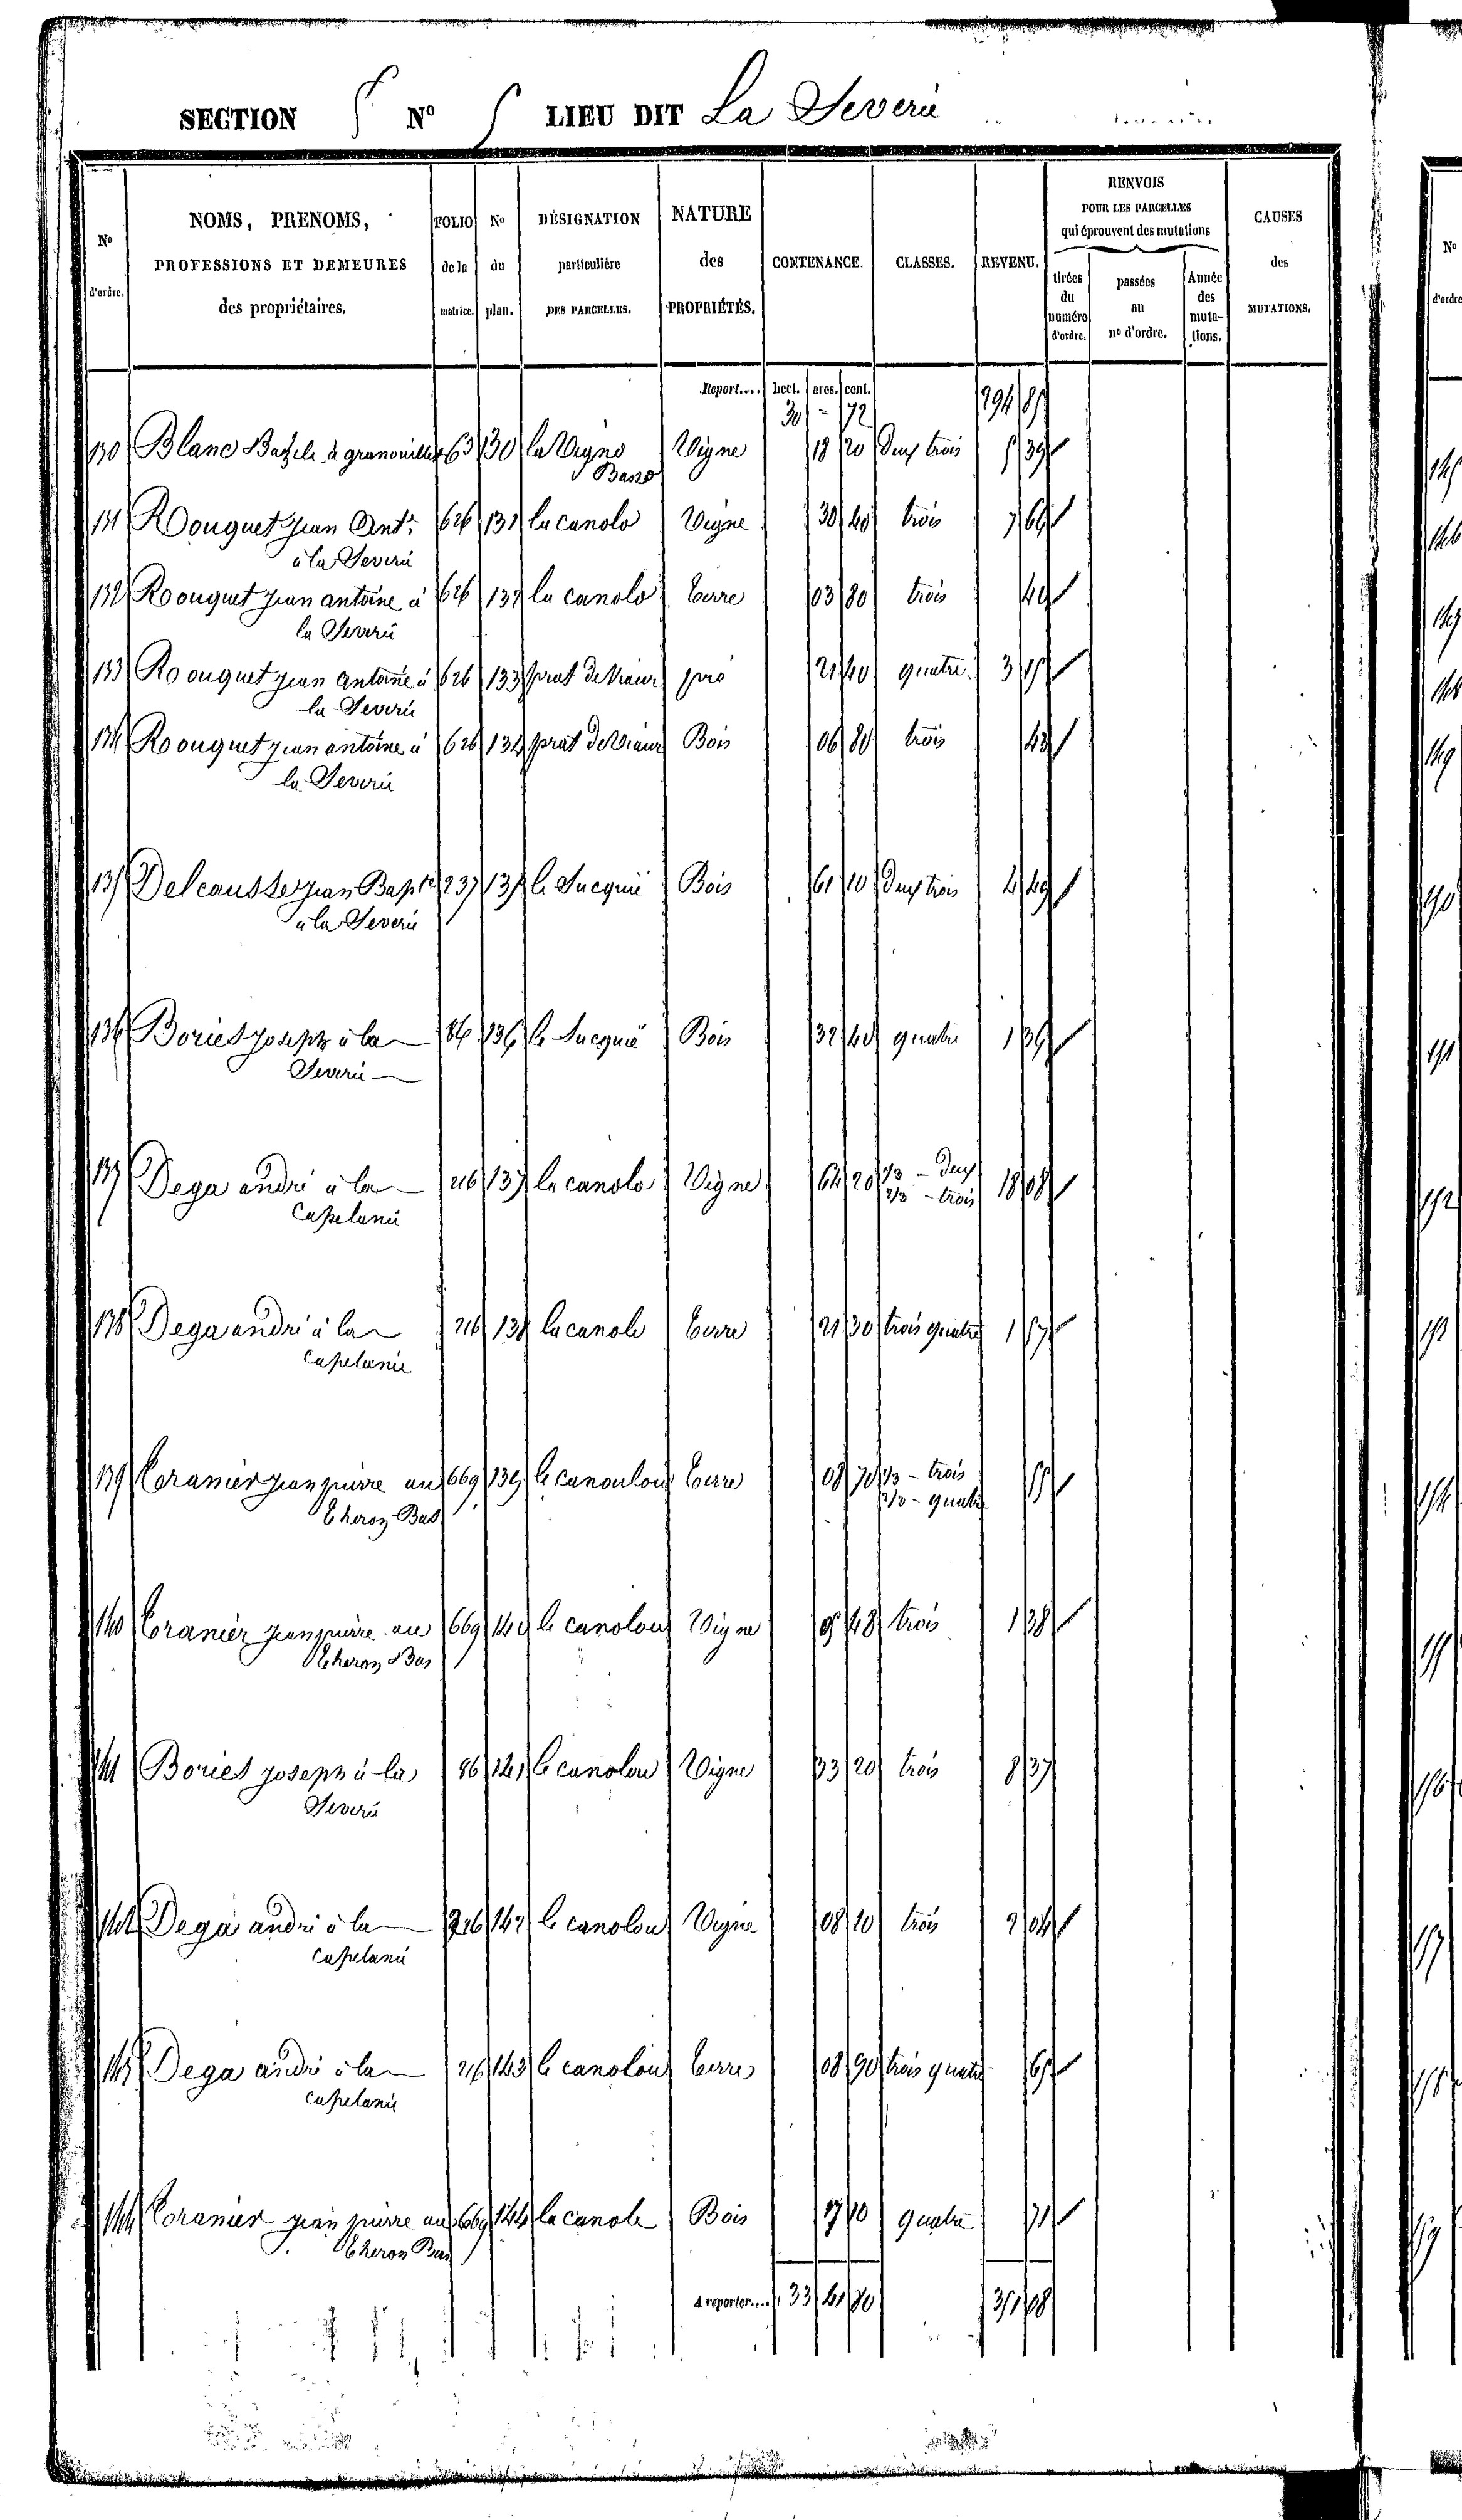 SECTION S N° 5 LIEU DIT La Severie
N° d'ordre.
NOMS, PRENOMS, PROFESSIONS ET DEMEURES des propriétaires.
FOLIO de la matrice.
N° du plan.
DÉSIGNATION particulière DES PARCELLES.
NATURE des PROPRIÉTÉS.
CONTENANCE.
CLASSES.
REVENU.
RENVOIS POUR LES PARCELLES qui éprouvent des mutations
tirées du numéro d'ordre.
passées au n° d'ordre.
Année des mutations.
CAUSES des MUTATIONS.
Report.... hect. ares. cent.
30 - 72 294 85
130 Blanc à granouillet 63 130 la Vigne Vigne 18 20 Deux trois 5 39
Basso
131 Rouquet jean Ant. 626 131 la canolo Vigne 30 40 trois 7 66
à la Severie
132 Rouquet jean antoine à 626 132 la canolo terre 03 80 trois 49
la Severie
133 Rouquet jean antoine à 626 133 prat de Viaur pré 21 40 quatre 3
la Severie
134 Rouquet jean antoine à 626 134 prat de Viaur Bois 06 80 trois 43
la Severie
135 Delcausse jean Bapte 237 135 le Sucquié Bois 61 10 Deux trois 4 49
à la Severie
136 Bories joseph à la 86 136 le Sucquié Bois 32 40 quatre 1 36
Severie
137 Dega andré à la 216 137 la canolo Vigne 64 20 1/3 - Deux 18 08
Capelanie 2/3 - trois
138 Dega andré à la 216 138 la canole terre 21 30 trois quatre 1 57
Capelanie
139 Cranier jean pierre au 669 139 le canoulou terre 08 70 1/3 - trois
Theron Bas 2/3 - quatre
140 Cranier jean pierre au 669 140 le canolou Vigne 48 trois 1 38
Theron Bas
141 Bories joseph à la 86 141 le canolou Vigne 33 20 trois 8 37
Severie
142 Dega andré à la 216 142 le canolou Vigne 08 10 trois 2 04
Capelanie
143 Dega andré à la 216 143 le canolou terre 08 90 trois quatre 65
Capelanie
144 Cranier jean pierre au 669 144 la canole Bois 17 10 quatre 71
Theron Bas
A reporter.... 33 41 80